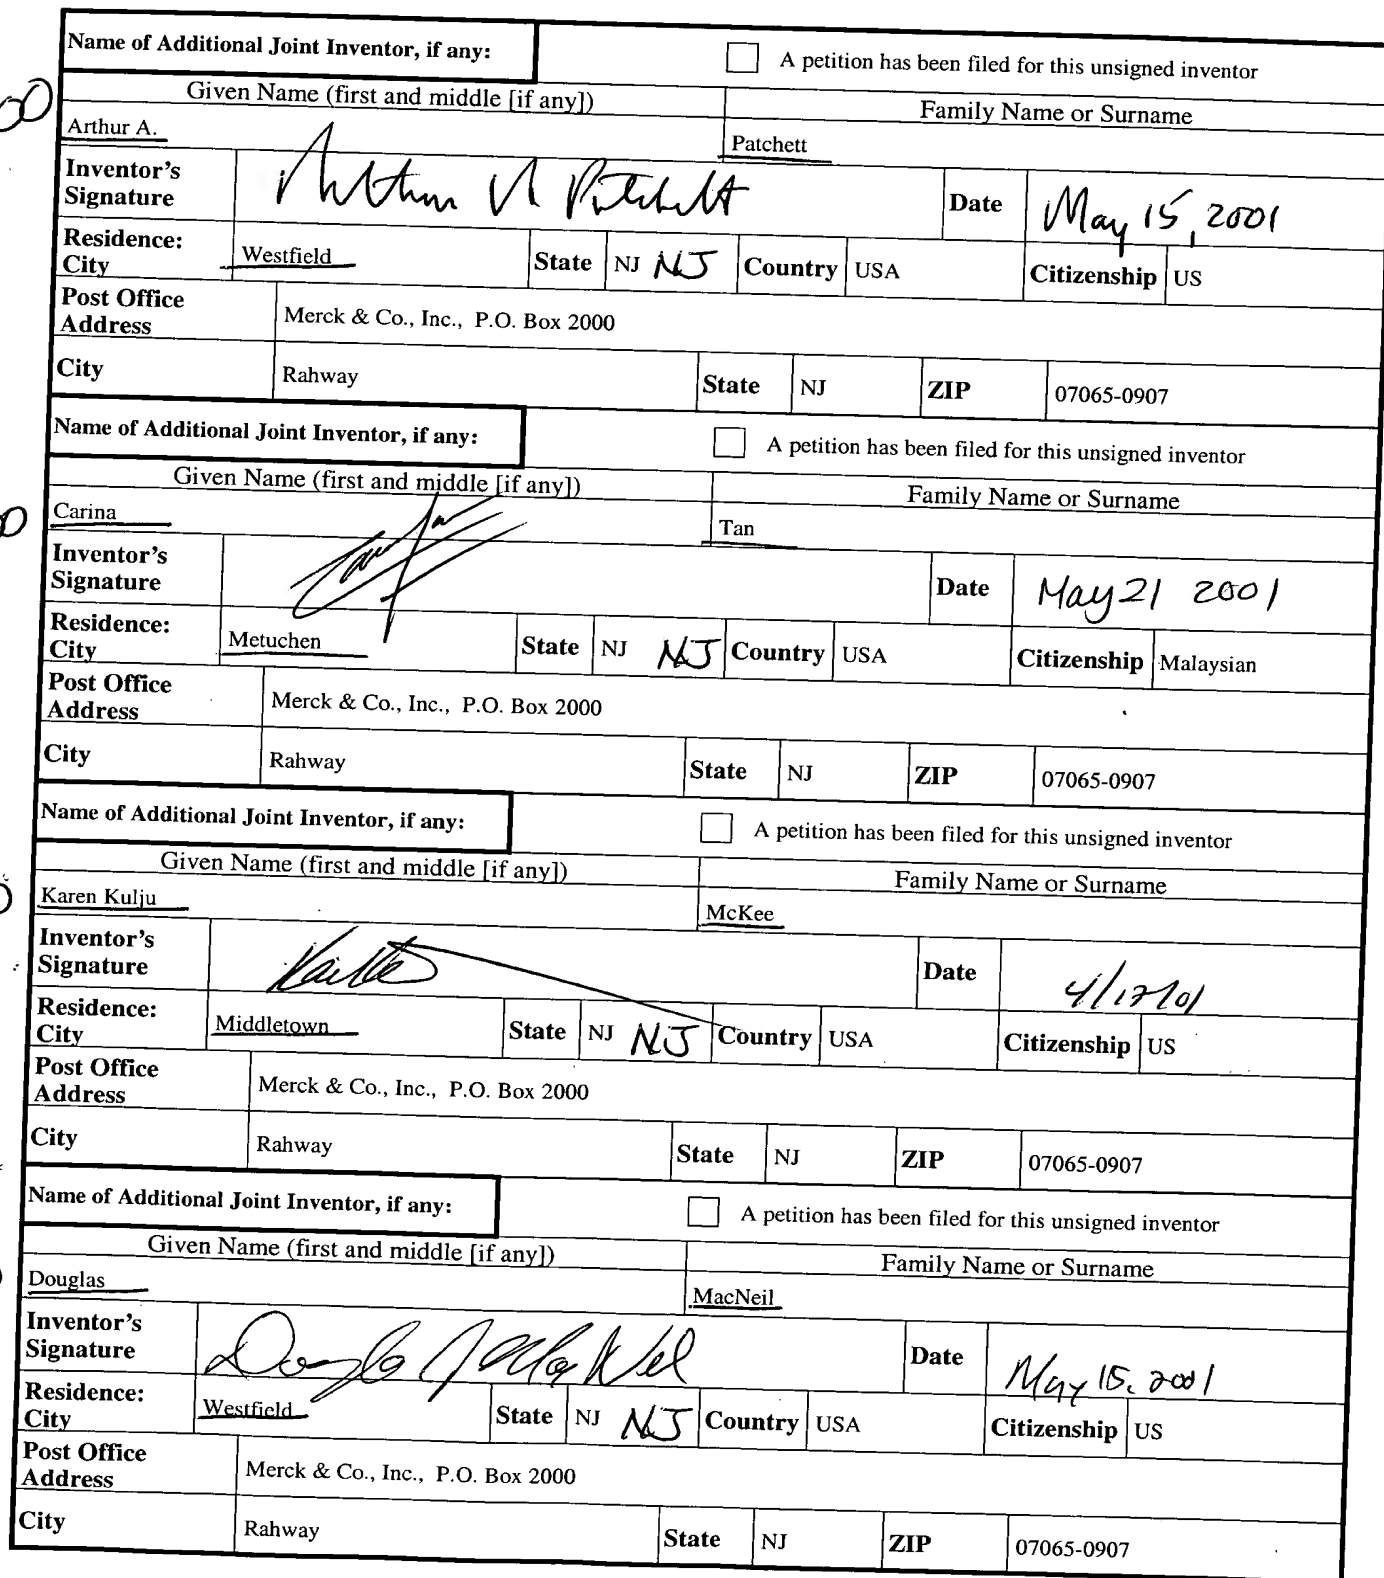 Name of Additional Joint Inventor, if any: A petition has been filed for this unsigned inventor
Given Name (first and middle [if any]) Family Name or Surname
Arthur A. Patchett
Inventor's Signature Arthur A Patchett Date May 15, 2001
Residence: City Westfield State NJ NJ Country USA Citizenship US
Post Office Address Merck & Co., Inc., P.O. Box 2000
City Rahway State NJ ZIP 07065-0907
Name of Additional Joint Inventor, if any: A petition has been filed for this unsigned inventor
Given Name (first and middle [if any]) Family Name or Surname
Carina Tan
Inventor's Signature Date May 21 2001
Residence: City Metuchen State NJ NJ Country USA Citizenship Malaysian
Post Office Address Merck & Co., Inc., P.O. Box 2000
City Rahway State NJ ZIP 07065-0907
Name of Additional Joint Inventor, if any: A petition has been filed for this unsigned inventor
Given Name (first and middle [if any]) Family Name or Surname
Karen Kulju McKee
Inventor's Signature Date 4/17/01
Residence: City Middletown State NJ NJ Country USA Citizenship US
Post Office Address Merck & Co., Inc., P.O. Box 2000
City Rahway State NJ ZIP 07065-0907
Name of Additional Joint Inventor, if any: A petition has been filed for this unsigned inventor
Given Name (first and middle [if any]) Family Name or Surname
Douglas MacNeil
Inventor's Signature Douglas J MacNeil Date May 15, 2001
Residence: City Westfield State NJ NJ Country USA Citizenship US
Post Office Address Merck & Co., Inc., P.O. Box 2000
City Rahway State NJ ZIP 07065-0907